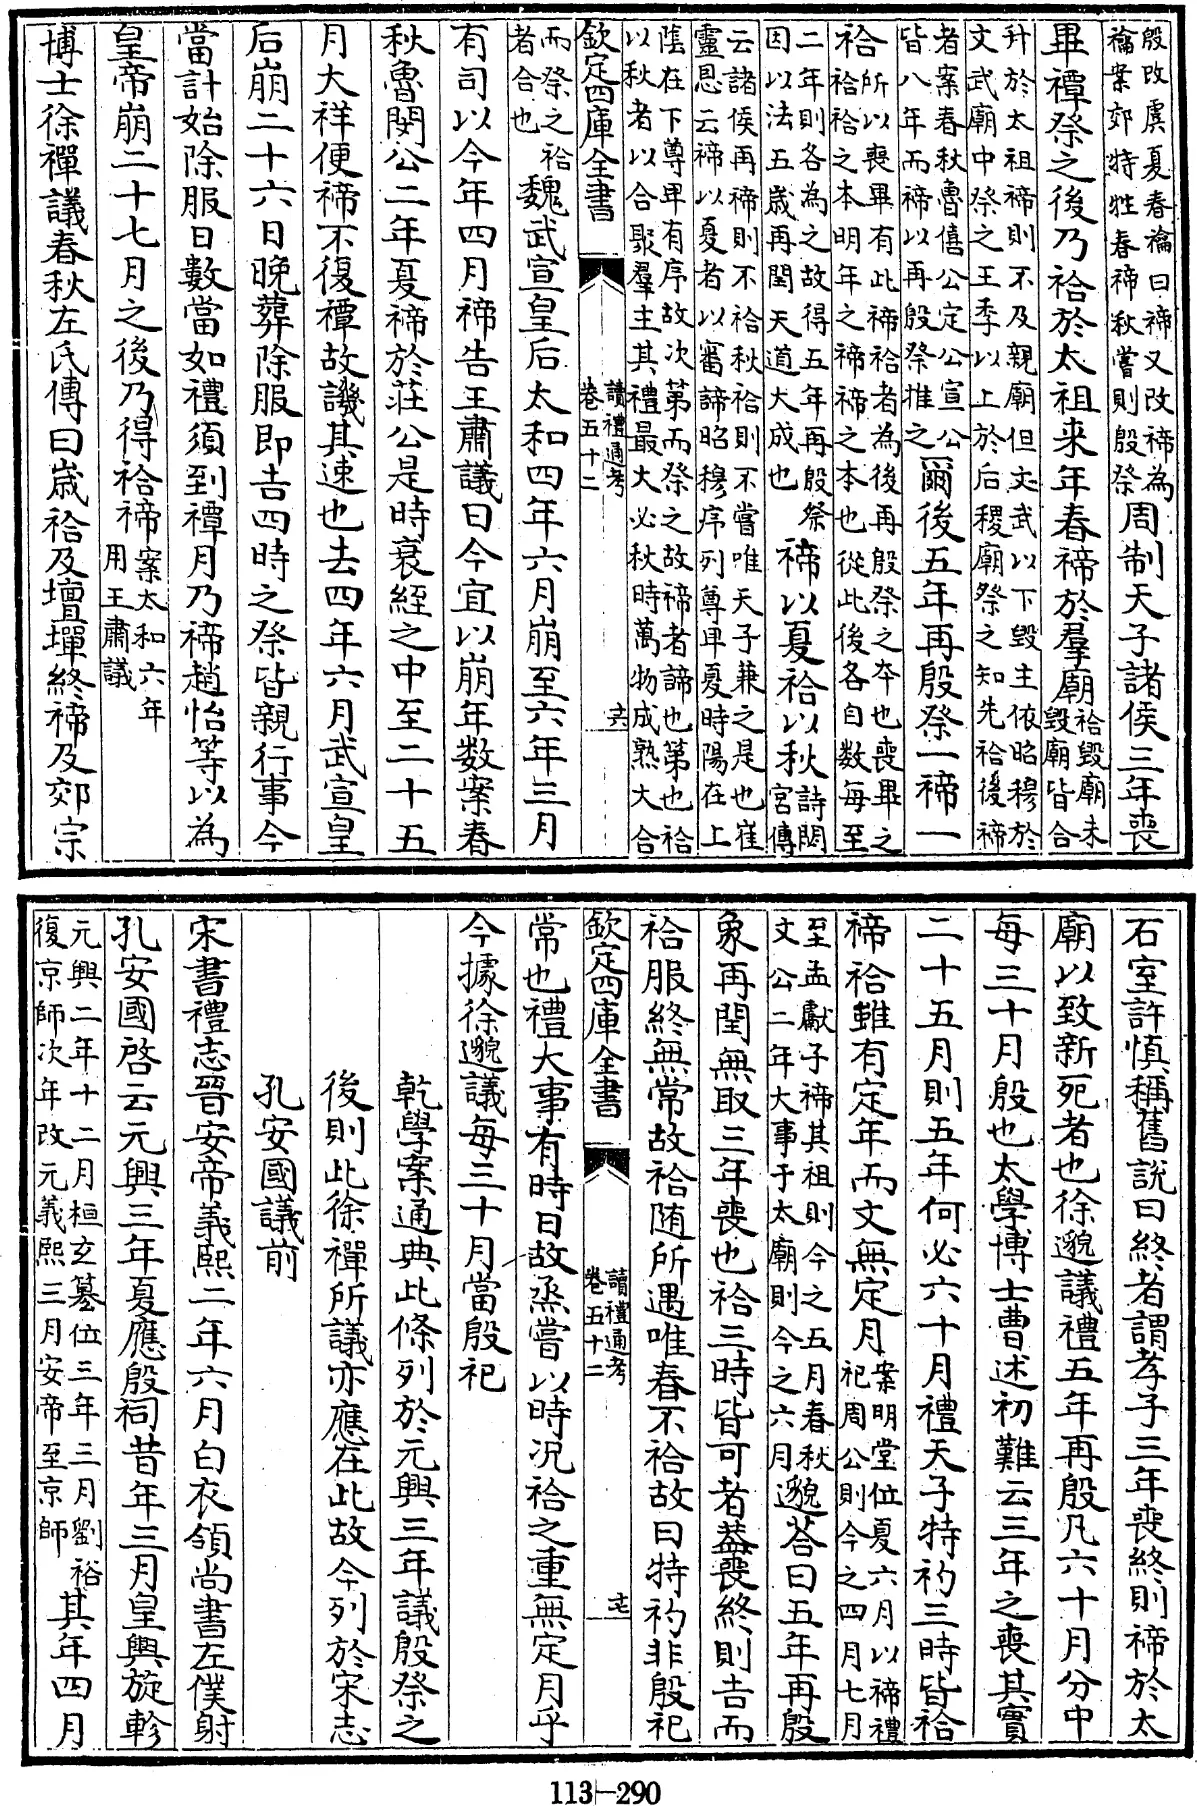 殷改虞夏春禴曰禘又改禘為
禴案郊特牲春禘秋嘗則殷祭
周制天子諸侯三年喪
畢禫祭之後乃祫於太祖来年春禘於羣廟
祫毀廟未
毀廟皆合
升於太祖禘則不及親廟但文武以下毀主依昭穆於
文武廟中祭之王季以上於后稷廟祭之知先祫後禘
者案春秋魯僖公定公宣公
皆八年而禘以再殷祭推之
爾後五年再殷祭一禘一
祫
所以喪畢有此禘祫者為後再殷祭之夲也喪畢之
祫祫之本明年之禘禘之本也從此後各自数每至
二年則各為之故得五年再殷祭
因以法五歲再閏天道大成也
禘以夏祫以秋
詩閟
宮傳
云諸侯再禘則不祫秋祫則不嘗唯天子兼之是也崔
靈恩云禘以夏者以審諦昭穆序列尊卑夏時陽在上
隂在下尊卑有序故次第而祭之故禘者諦也第也祫
以秋者以合聚羣主其禮最大必秋時萬物成熟大合
欽定四庫全書
讀禮通考
卷五十二
六
而祭之祫
者合也
魏武宣皇后太和四年六月崩至六年三月
有司以今年四月禘告王肅議曰今宜以崩年数案春
秋魯閔公二年夏禘於莊公是時衰絰之中至二十五
月大祥便禘不復禫故譏其速也去四年六月武宣皇
后崩二十六日晚葬除服即吉四時之祭皆親行事今
當計始除服日數當如禮須到禫月乃禘趙怡等以為
皇帝崩二十七月之後乃得祫禘
案太和六年
用王肅議
博士徐禪議春秋左氏傳曰歲祫及壇墠終禘及郊宗
石室許慎稱舊説曰終者謂孝子三年喪終則禘於太
廟以致新死者也徐邈議禮五年再殷凡六十月分中
每三十月殷也太學博士曹述初難云三年之喪其實
二十五月則五年何必六十月禮天子特礿三時皆祫
禘祫雖有定年而文無定月
案明堂位夏六月以禘禮
祀周公則今之四月七月
至孟獻子禘其祖則今之五月春秋
文公二年大事于太廟則今之六月
邈答曰五年再殷
象再閏無取三年喪也祫三時皆可者葢喪終則吉而
祫服終無常故祫随所遇唯春不祫故曰特礿非殷祀
欽定四庫全書
讀禮通考
卷五十二
七
常也禮大事有時日故烝嘗以時况祫之重無定月乎
今據徐邈議每三十月當殷祀
乾學案通典此條列於元興三年議殷祭之
後則此徐禪所議亦應在此故今列於宋志
孔安國議前
宋書禮志晉安帝義熙二年六月白衣領尚書左僕射
孔安國啓云元興三年夏應殷祠昔年三月皇輿旋軫
元興二年十二月桓玄簒位三年三月劉裕
復京師次年改元義熙三月安帝至京師
其年四月
113-290